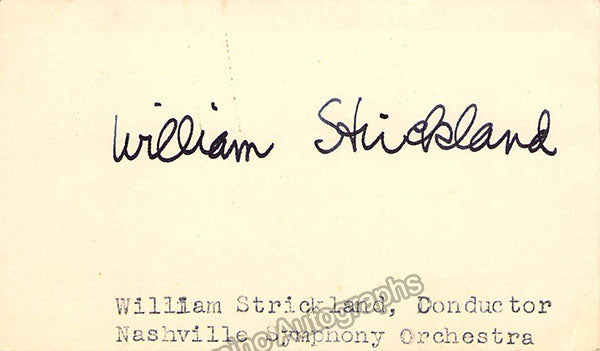 William Strickland
William Strickland, Conductor
Nashville Symphony Orchestra